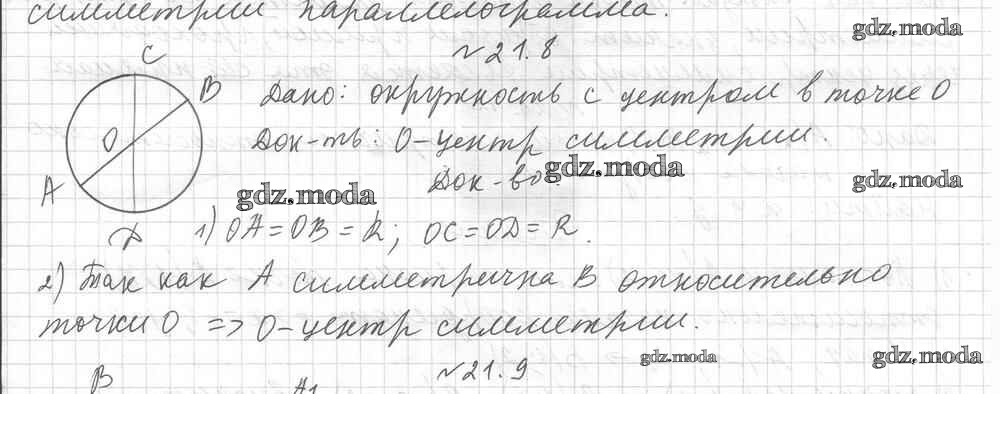 симметрии параллелограмма.
gdz.moda
№21.8
C
B
O
A
D
Дано: окружность с центром в точке O
Док-ть: O-центр симметрии.
Док-во:
gdz.moda
gdz.moda
gdz.moda
1) OA=OB=R; OC=OD=R.
2) Так как A симметрична B относительно
точки O => O-центр симметрии.
gdz.moda
gdz.moda
№21.9
B
A1